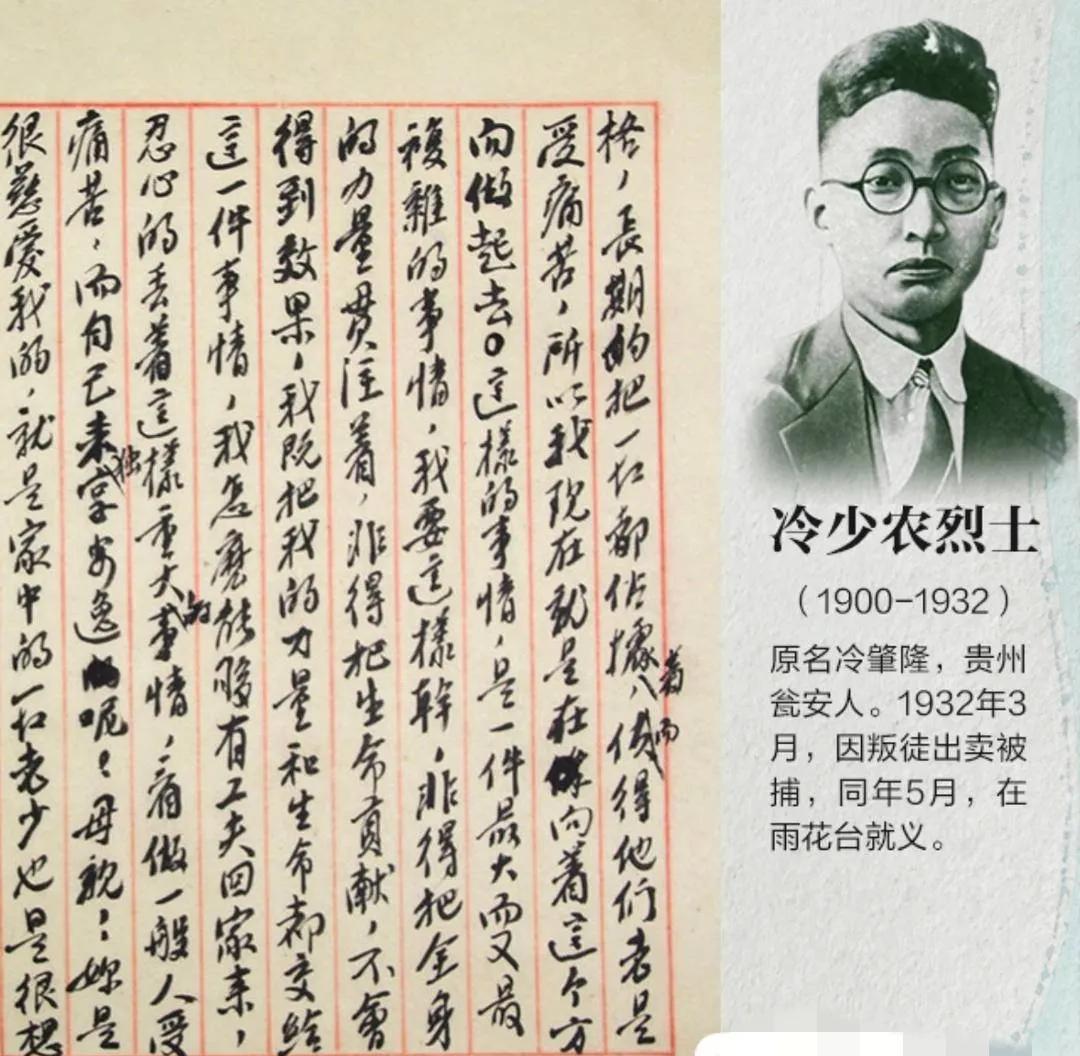 格，長期的把一切都佔據着而使得他們老是
受痛苦，所以我現在就是在向着這个方
向做起去。這樣的事情，是一件最大而又最
複雜的事情，我要這樣幹，非得把全身
的力量貫注着，非得把生命貢献，不會
得到效果，我既把我的力量和生命都交給
這一件事情，我怎麽能夠有工夫回家来，
忍心的丢着這樣重大的事情，看做一般人受
痛苦，而自己来独享安逸呢？母親！妳是
很慈爱我的，就是家中的一切老少也是很想
冷少农烈士
（1900-1932）
原名冷肇隆，贵州
瓮安人。1932年3
月，因叛徒出卖被
捕，同年5月，在
雨花台就义。